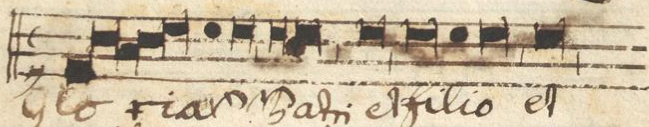 Gloria Patri et filio et